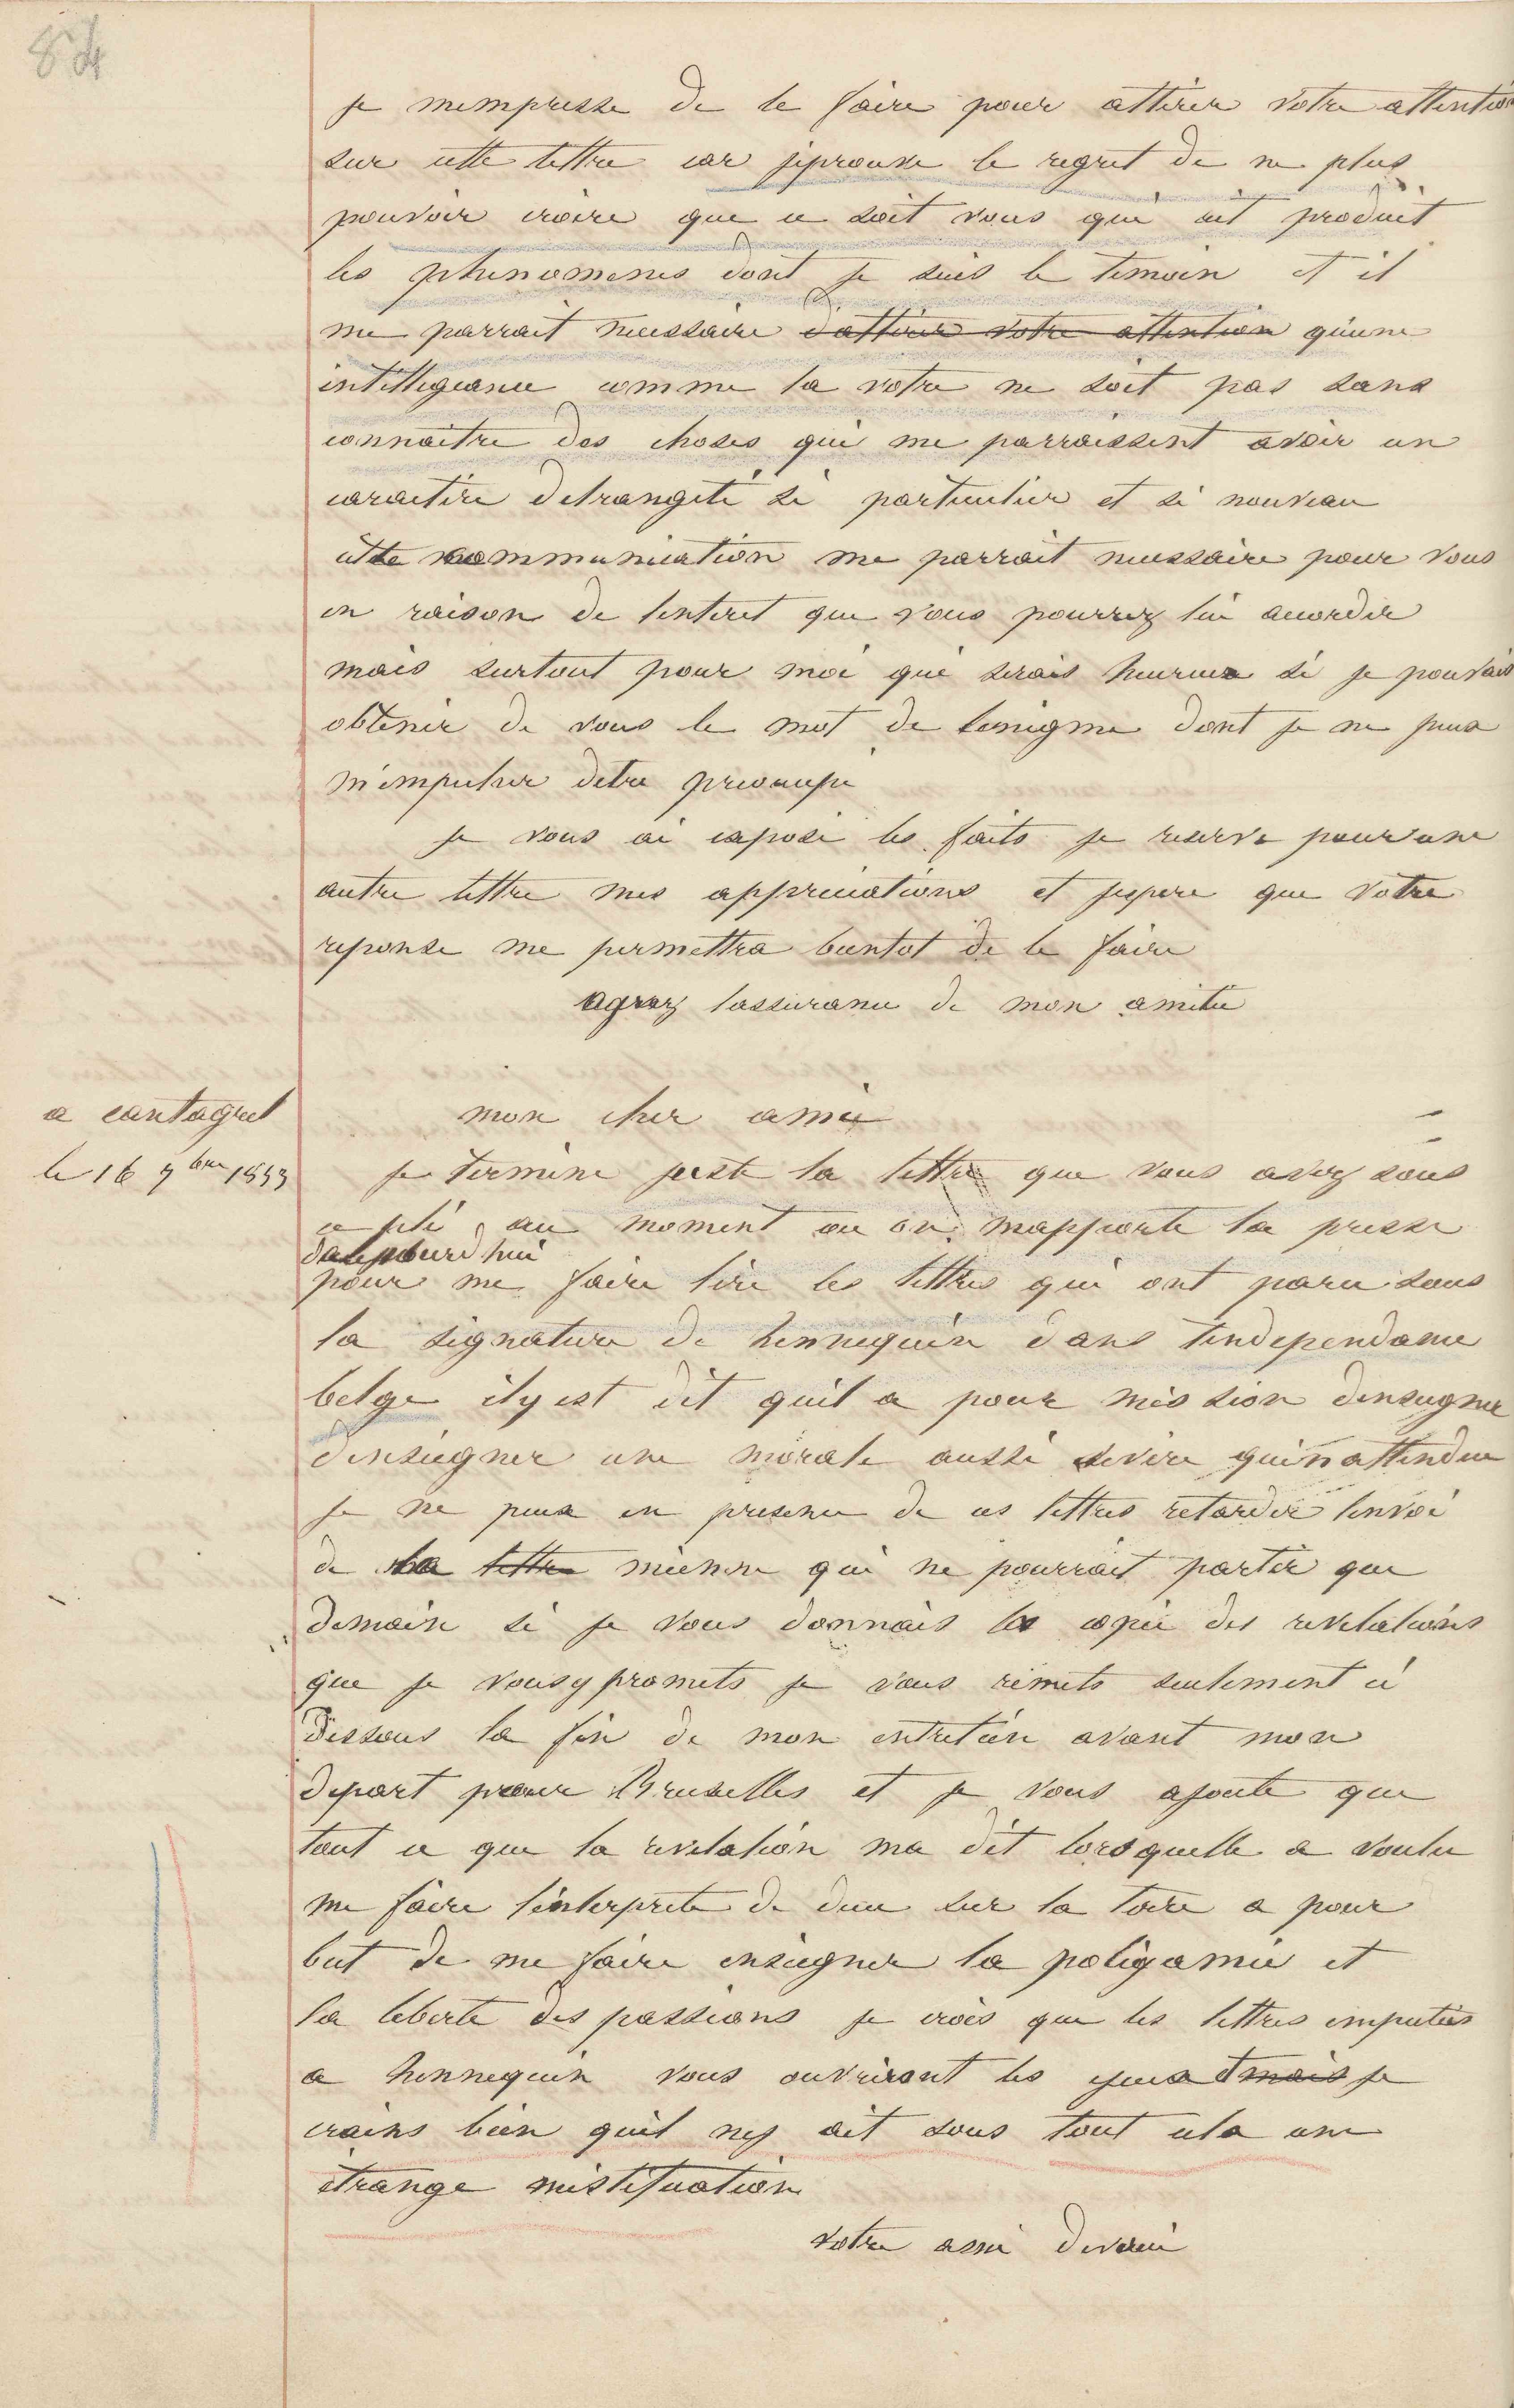 84
je mempresse de le faire pour attirer votre attention
sur cette lettre car jeprouve le regret de ne plus
pouvoir croire que ce soit vous qui ait produit
les phenomenes dont je suis le temoin et il
me parrait necessaire d'attirer votre attention qu'une
intelligeance comme la votre ne soit pas sans
connaitre des choses qui me parraissent avoir un
caractere detrangeté si particulier et si nouveau
cette communication me parrait necessaire pour vous
en raison de linteret que vous pourrez lui accorder
mais surtout pour moi qui serais heureux si je pouvais
obtenir de vous le mot de lenigme dont je ne peux
m'empecher detre preoccupé
je vous ai exposé les faits je reserve pour une
autre lettre mes appreciations et jespere que votre
reponse me permettra bientot de le faire
agreez lassurance de mon amitie
a cantagrel
le 16 9bre 1853
mon cher ami
je termine juste la lettre que vous avez sous
ce pli, au moment ou on mapporte la presse
daujourdhui
pour me faire lire les lettres qui ont paru sous
la signature de hennequin dans lindependance
belge il y est dit quil a pour mission denseigner
denseigner une morale aussi severe quinattendue
je ne peux en presence de ces lettres retarder lenvoi
de la lettre mienne qui ne pourrait partir que
demain si je vous donnais la copie des revelations
que je vous y promets je vous remets seulement ci
dessous la fin de mon entretien avant mon
depart pour Bruxelles et je vous ajoute que
tout ce que la revelation ma dit lorsquelle a voulu
me faire linterprete de dieu sur la terre a pour
but de me faire enseigner la poligamie et
la liberte des passions je crois que les lettres imputées
a hennequin vous ouvriront les yeux et mais je
crains bien quil ny ait sous tout cela une
étrange mistification
votre ami devoué